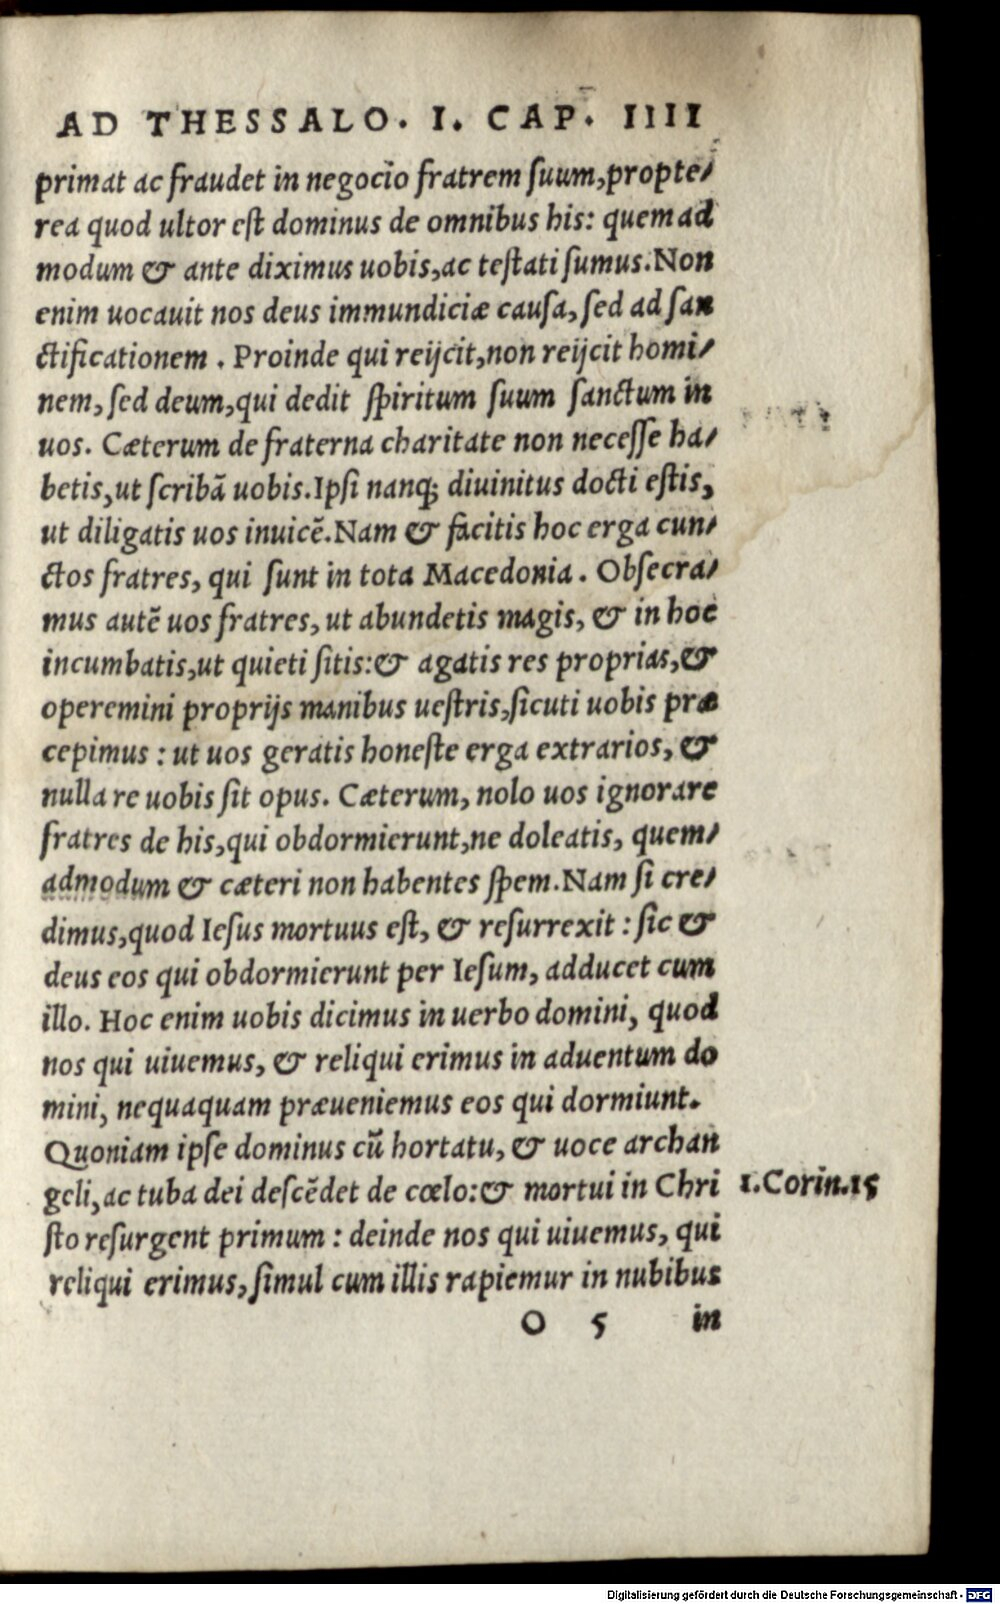 AD THESSALO. I. CAP. IIII
primat ac fraudet in negocio fratrem suum, propte/
rea quod ultor est dominus de omnibus his: quemad
modum & ante diximus uobis, ac testati sumus. Non
enim uocauit nos deus immundiciæ causa, sed ad san
ctificationem. Proinde qui reijcit, non reijcit homi/
nem, sed deum, qui dedit spiritum suum sanctum in
uos. Cæterum de fraterna charitate non necesse ha/
betis, ut scribā uobis. Ipsi nanq; diuinitus docti estis,
ut diligatis uos inuicē. Nam & facitis hoc erga cun/
ctos fratres, qui sunt in tota Macedonia. Obsecra/
mus autē uos fratres, ut abundetis magis, & in hoc
incumbatis, ut quieti sitis: & agatis res proprias, &
operemini proprijs manibus uestris, sicuti uobis præ
cepimus: ut uos geratis honeste erga extrarios, &
nulla re uobis sit opus. Cæterum, nolo uos ignorare
fratres de his, qui obdormierunt, ne doleatis, quem/
admodum & cæteri non habentes spem. Nam si cre/
dimus, quod Iesus mortuus est, & resurrexit: sic &
deus eos qui obdormierunt per Iesum, adducet cum
illo. Hoc enim uobis dicimus in uerbo domini, quod
nos qui uiuemus, & reliqui erimus in aduentum do
mini, nequaquam præueniemus eos qui dormiunt.
Quoniam ipse dominus cū hortatu, & uoce archan
geli, ac tuba dei descēdet de cœlo: & mortui in Chri
1. Corin. 15
sto resurgent primum: deinde nos qui uiuemus, qui
reliqui erimus, simul cum illis rapiemur in nubibus
O 5 in
Digitalisierung gefördert durch die Deutsche Forschungsgemeinschaft - DFG